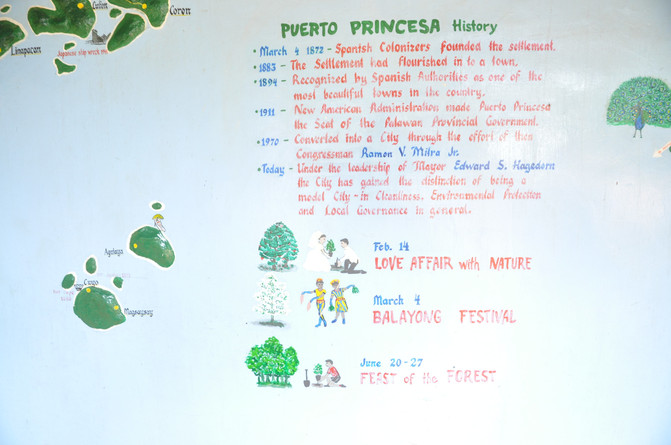 Coron
Linapacan
PUERTO PRINCESA History
• March 4 1872 - Spanish Colonizers founded the settlement.
• 1883 - The Settlement had flourished in to a town.
• 1894 - Recognized by Spanish Authorities as one of the
most beautiful towns in the country.
• 1911 - New American Administration made Puerto Princesa
the Seat of the Palawan Provincial Government.
• 1970 - Converted into a City through the effort of then
Congressman Ramon V. Mitra Jr.
• Today - Under the leadership of Mayor Edward S. Hagedorn
the City has gained the distinction of being a
model City - in Cleanliness, Environmental Protection
and Local Governance in general.
Agutaya
Cuyo
Magsaysay
Feb. 14
LOVE AFFAIR with NATURE
March 4
BALAYONG FESTIVAL
June 20-27
FEAST of the FOREST